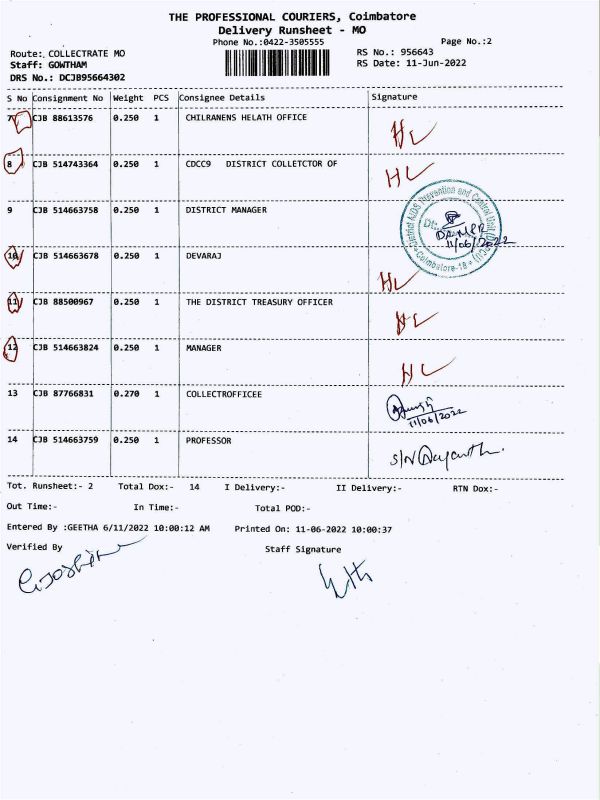 THE PROFESSIONAL COURIERS, Coimbatore
Delivery Runsheet - MO
Phone No.:0422-3505555 Page No.:2
Route: COLLECTRATE MO RS No.: 956643
Staff: GOWTHAM RS Date: 11-Jun-2022
DRS No.: DCJB95664302
S No Consignment No Weight PCS Consignee Details Signature
7 CJB 88613576 0.250 1 CHILRANENS HELATH OFFICE HL
8 CJB 514743364 0.250 1 CDCC9 DISTRICT COLLETCTOR OF HL
9 CJB 514663758 0.250 1 DISTRICT MANAGER
District AIDS Prevention and Control Unit
Dt:
11/06/2022
Coimbatore-18
10 CJB 514663678 0.250 1 DEVARAJ HL
11 CJB 88500967 0.250 1 THE DISTRICT TREASURY OFFICER HL
12 CJB 514663824 0.250 1 MANAGER HL
13 CJB 87766831 0.270 1 COLLECTROFFICEE
11/06/2022
14 CJB 514663759 0.250 1 PROFESSOR
Tot. Runsheet:- 2 Total Dox:- 14 I Delivery:- II Delivery:- RTN Dox:-
Out Time:- In Time:- Total POD:-
Entered By :GEETHA 6/11/2022 10:00:12 AM Printed On: 11-06-2022 10:00:37
Verified By Staff Signature